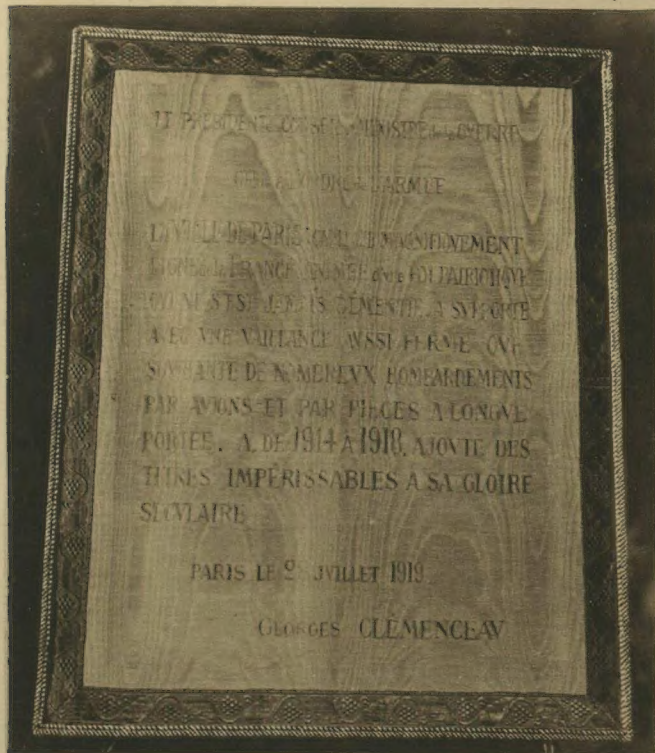 LE PRÉSIDENT du CONSEIL MINISTRE de la GVERRE
CITE à l'ORDRE de L'ARMÉE
LA VILLE DE PARIS CAPITALE MAGNIFIQVEMENT
DIGNE de la FRANCE ANIMÉE d'une FOI PATRIOTIQVE
QVI NE S'EST JAMAIS DÉMENTIE. A SVPPORTÉ
AVEC VNE VAILLANCE AVSSI FERME QVE
SOVRIANTE DE NOMBREVX BOMBARDEMENTS
PAR AVIONS ET PAR PIÈCES A LONGVE
PORTÉE. A, DE 1914 A 1918, AJOVTÉ DES
TITRES IMPÉRISSABLES A SA GLOIRE
SÉCVLAIRE
PARIS LE JVILLET 1919
GEORGES CLÉMENCEAV